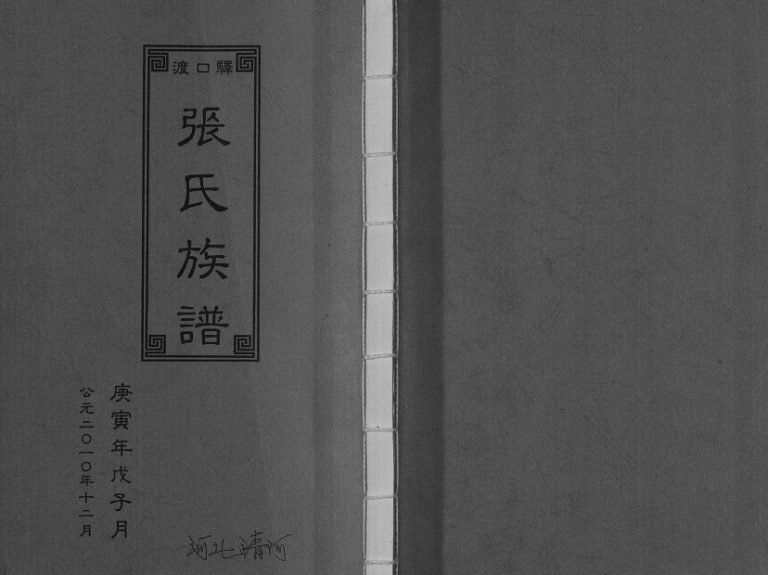 渡口驛
張氏族譜
庚寅年戊子月
公元二〇一〇年十二月
河北清河